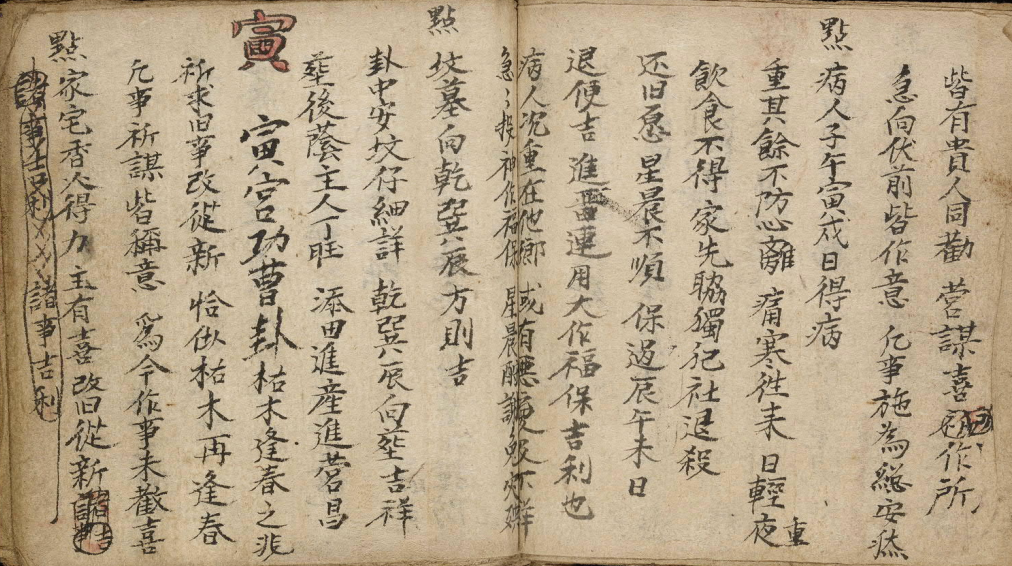 皆有貴人同勸 营謀喜 作所
急向伏前皆作意 凢事施為総安然
點 病人子午寅戌日得病
重其餘不防心離 痛寒徃来 日輕夜重
飲食不得 家先脇獨祀社退殺
还旧愿 星晨不順 保过辰午未日
退便吉 進 運用大作福保吉利也
病人沉重在他鄉 或有
急〻投神作福保 星晨
點 坟墓向乾巽辰方則吉
卦中安坟仔細詳 乾巽辰向塟吉祥
塟後蔭主人丁旺 添田進産進营昌
寅 寅宫功曹卦 枯木逢春之兆
祈求旧事改從新 恰似枯木再逢春
凢事祈謀皆稱意 為今作事未歡喜
點 家宅香火得力 主有喜 改旧從新 諸事吉
諸事吉利 諸事吉利